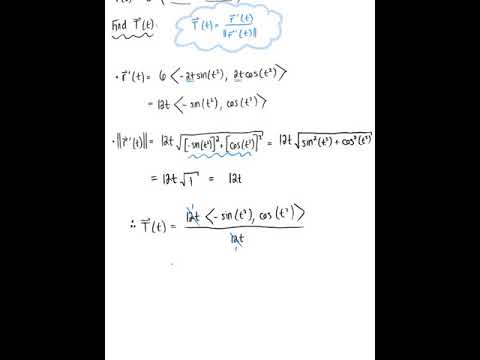 Find T⃗(t)  T⃗(t) = r⃗'(t) / ||r⃗'(t)||
• r⃗'(t) = 6 ⟨-2t sin(t²), 2t cos(t²)⟩
= 12t ⟨-sin(t²), cos(t²)⟩
• ||r⃗'(t)|| = 12t √([-sin(t²)]² + [cos(t²)]²) = 12t √(sin²(t²) + cos²(t²))
= 12t √1 = 12t
∴ T⃗(t) = 12t ⟨-sin(t²), cos(t²)⟩ / 12t